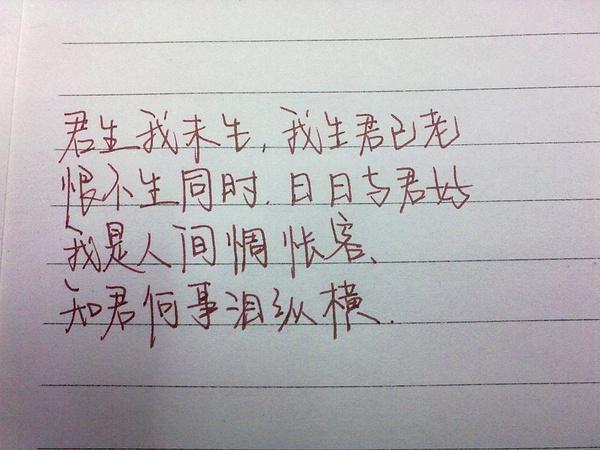 君生我未生，我生君已老
恨不生同时，日日与君好
我是人间惆怅客、
知君何事泪纵横．